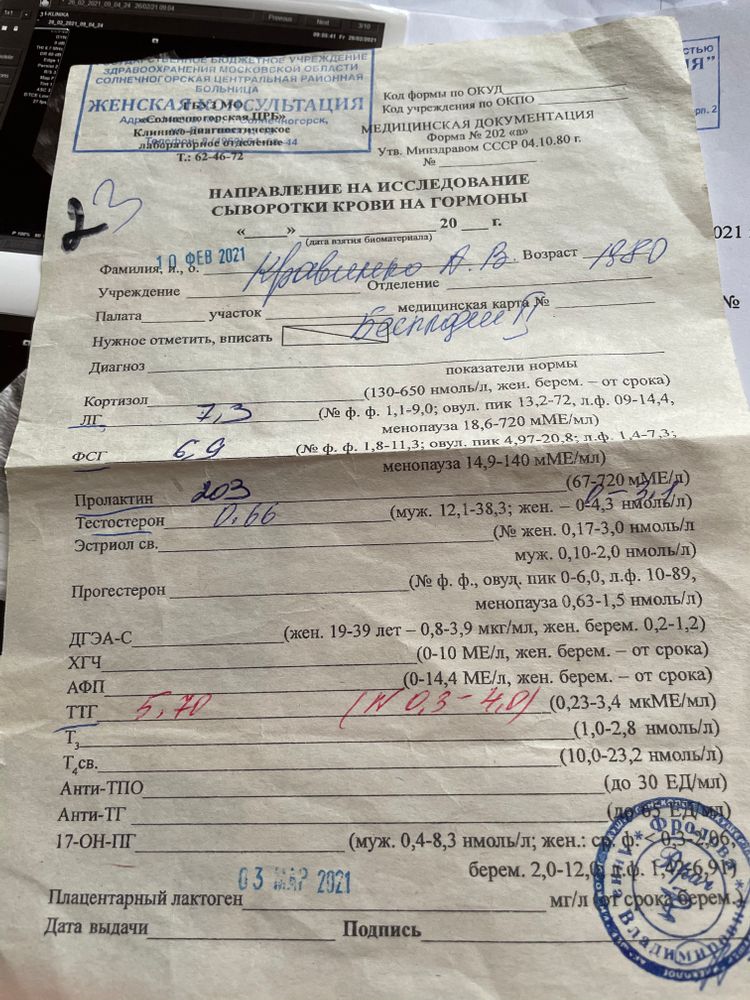 26_02_2021_09_04_24 26/02/2021 09:04
Previous Next 3/10
09:05:41 Fr 26/02/2021
ГОСУДАРСТВЕННОЕ БЮДЖЕТНОЕ УЧРЕЖДЕНИЕ
ЗДРАВООХРАНЕНИЯ МОСКОВСКОЙ ОБЛАСТИ
СОЛНЕЧНОГОРСКАЯ ЦЕНТРАЛЬНАЯ РАЙОННАЯ
БОЛЬНИЦА
ЖЕНСКАЯ КОНСУЛЬТАЦИЯ
ГБУЗ МО
«Солнечногорская ЦРБ»
Клинико-диагностическое
лабораторное отделение
Т.: 62-46-72
Код формы по ОКУД
Код учреждения по ОКПО
МЕДИЦИНСКАЯ ДОКУМЕНТАЦИЯ
Форма № 202 «а»
Утв. Минздравом СССР 04.10.80 г.
№
23
НАПРАВЛЕНИЕ НА ИССЛЕДОВАНИЕ
СЫВОРОТКИ КРОВИ НА ГОРМОНЫ
«____» ____________ 20 ___ г.
(дата взятия биоматериала)
10 ФЕВ 2021
Фамилия, и., о. А. В. Возраст 1980
Учреждение Отделение
Палата участок медицинская карта №
Нужное отметить, вписать Бесплодие II
Диагноз
показатели нормы
Кортизол (130-650 нмоль/л, жен. берем. – от срока)
ЛГ 7,3 (№ ф. ф. 1,1-9,0; овул. пик 13,2-72, л.ф. 09-14,4,
менопауза 18,6-720 мМЕ/л)
ФСГ 6,9 (№ ф. ф. 1,8-11,3; овул. пик 4,97-20,8; л.ф. 1,4-7,3;
менопауза 14,9-140 мМЕ/л)
Пролактин 203 (67-720 мМЕ/л)
0-3,1
Тестостерон 0,66 (муж. 12,1-38,3; жен. – 0-4,3 нмоль/л)
Эстриол св. (№ жен. 0,17-3,0 нмоль/л
муж. 0,10-2,0 нмоль/л)
Прогестерон (№ ф. ф., овуд. пик 0-6,0, л.ф. 10-89,
менопауза 0,63-1,5 нмоль/л)
ДГЭА-С (жен. 19-39 лет – 0,8-3,9 мкг/мл, жен. берем. 0,2-1,2)
ХГЧ (0-10 МЕ/л, жен. берем. – от срока)
АФП (0-14,4 МЕ/л, жен. берем. – от срока)
ТТГ 5,70 (N 0,3-4,0) (0,23-3,4 мкМЕ/мл)
Т3 (1,0-2,8 нмоль/л)
Т4св. (10,0-23,2 нмоль/л)
Анти-ТПО (до 30 ЕД/мл)
Анти-ТГ (до 65 ЕД/мл)
17-ОН-ПГ (муж. 0,4-8,3 нмоль/л; жен.: ср. ф. 0,3-2,06;
берем. 2,0-12,0 л.ф. 1,47-6,91)
03 МАР 2021
Плацентарный лактоген мг/л (от срока берем.)
Дата выдачи Подпись
Фролова
Владимировна